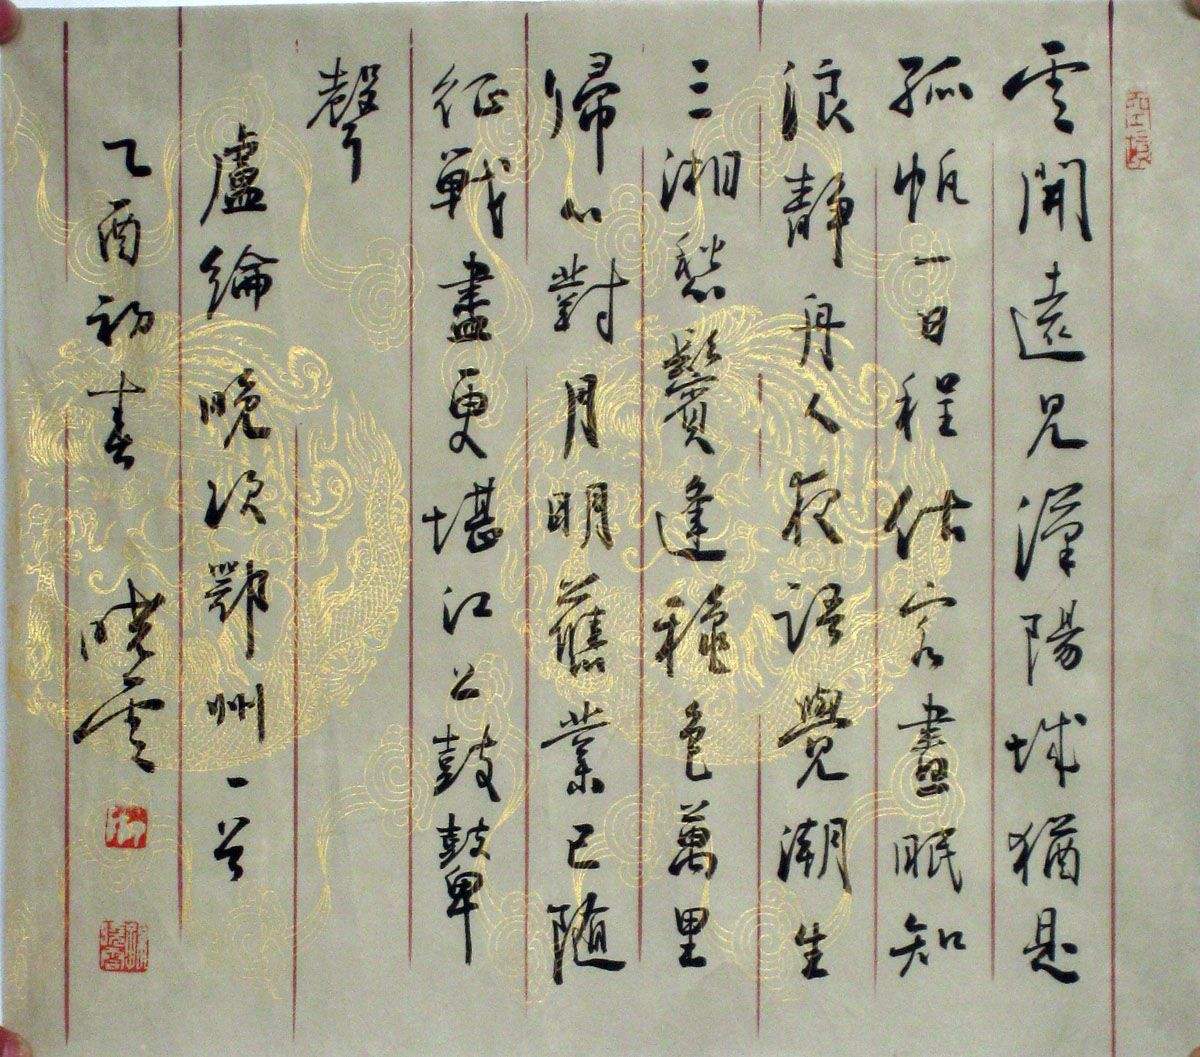 雲開遠見漢陽城猶是
孤帆一日程估客晝眠知
浪静舟人夜語覺潮生
三湘愁鬢逢穐色萬里
歸心對月明舊業已随
征戰盡更堪江上鼓鼙
聲
盧綸晚次鄂州一首
乙酉初春
曉雲